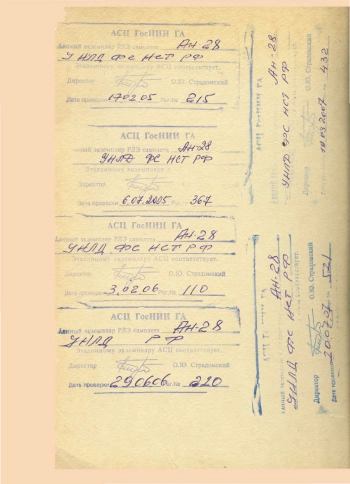 АСЦ ГосНИИ ГА
Данный экземпляр РЛЭ самолета Ан-28
УНЛД ФС НСТ РФ
Эталонному экземпляру АСЦ соответствует.
Директор О.Ю. Страдомский
Дата проверки 17.03.05 215
АСЦ ГосНИИ ГА
экземпляр РЛЭ самолета Ан-28
УНЛД ФС НСТ РФ
Эталонному экземпляру
Директор
Дата проверки 6.07.2005 367
АСЦ ГосНИИ ГА
Данный экземпляр РЛЭ самолета Ан-28
УНЛД ФС НСТ РФ
Эталонному экземпляру АСЦ соответствует.
Директор О.Ю. Страдомский
Дата проверки 3.02.06 110
АСЦ ГосНИИ ГА
Данный экземпляр РЛЭ самолета Ан-28
УНЛД РФ
Эталонному экземпляру АСЦ соответствует.
Директор О.Ю. Страдомский
Дата проверки 29.06.06 № 220
АСЦ ГосНИИ ГА
Ан-28
УНЛД ФС НСТ РФ
Директор О.Ю. Страдомский
19.03.2007 432
АСЦ ГА
Ан-28
УНЛД ФС НСТ РФ
Директор О.Ю. Страдомский
Дата 521